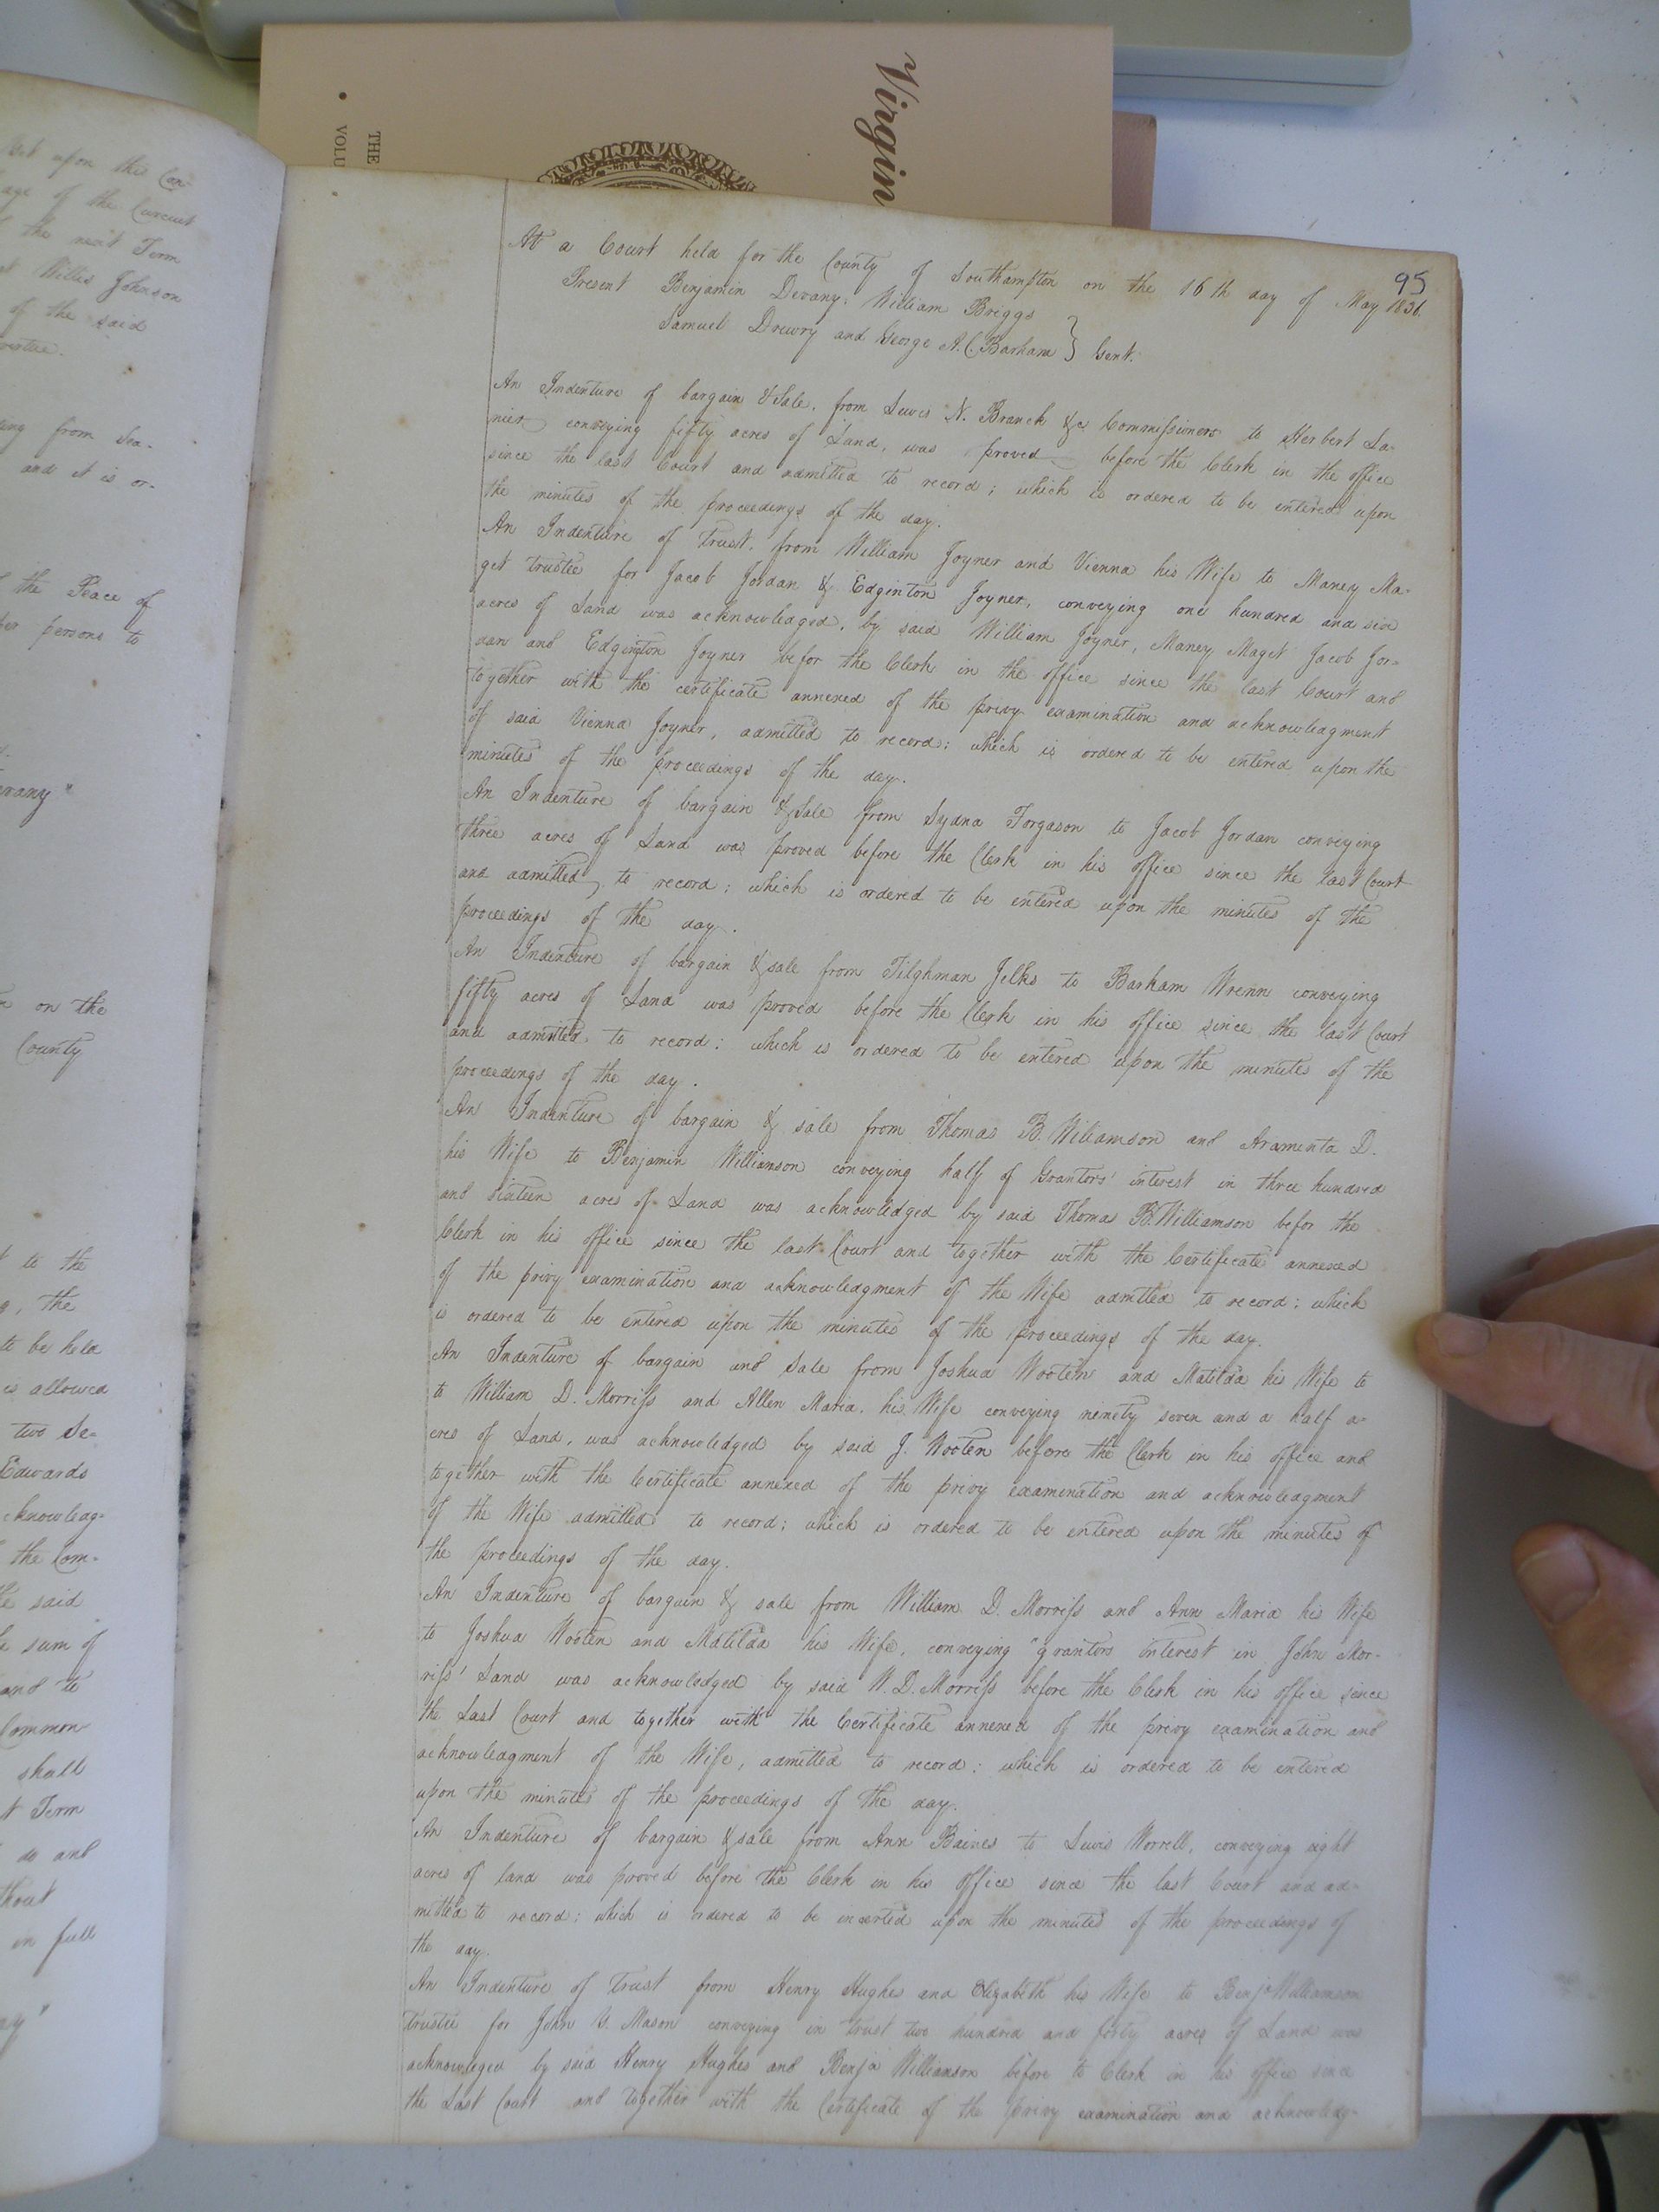 Virgin
THE
VOLU
95
set upon the Con-
age of the Circuit
the next Term
Willis Johnson
of the said
ing from Sea-
and it is or-
the Peace of
persons to
on the
County
to the
, the
to be held
is allowed
two Se-
Edwards
cknowledg-
the Com-
said
sum of
and to
Common
shall
Term
do and
thout
in full
At a Court held for the County of Southampton on the 16th day of May 1836.
Present Benjamin Devany, William Briggs
Samuel Drewry and George A. C. Barham } Gent.
An Indenture of bargain & Sale, from Lewis N. Branch &c Commissioners to Herbert La-
nier conveying fifty acres of Land, was proved before the Clerk in the office
since the last Court and admitted to record; which is ordered to be entered upon
the minutes of the proceedings of the day.
An Indenture of Trust, from William Joyner and Vienna his Wife to Maney Ma-
get trustee for Jacob Jordan & Edginton Joyner, conveying one hundred and six
acres of Land was acknowledged, by said William Joyner, Maney Maget Jacob Jor-
dan and Edgington Joyner befor the Clerk in the office since the last Court and
together with the certificate annexed of the privy examination and acknowledgment
of said Vienna Joyner, admitted to record: which is ordered to be entered upon the
minutes of the proceedings of the day.
An Indenture of bargain & Sale from Sydna Forgason to Jacob Jordan conveying
three acres of Land was proved before the Clerk in his office since the last Court
and admitted, to record; which is ordered to be entered upon the minutes of the
proceedings of the day.
An Indenture of bargain & sale from Tilghman Jelks to Barham Wrenn conveying
fifty acres of Land was proved before the Clerk in his office since the last Court
and admitted to record: which is ordered to be entered upon the minutes of the
proceedings of the day.
An Indenture of bargain & sale from Thomas B. Wiliamson and Araminta D.
his Wife to Benjamin Williamson conveying half of Grantors' interest in three hundred
and sixteen acres of Land was acknowledged by said Thomas B. Williamson befor the
Clerk in his office since the last Court and together with the Certificate annexed
of the privy examination and acknowledgment of the Wife admitted to record: which
is ordered to be entered upon the minutes of the proceedings of the day.
An Indenture of bargain and Sale from Joshua Wooten and Matilda his Wife to
to William D. Morriss and Allen Maria, his Wife conveying ninety seven and a half a-
cres of Land, was acknowledged by said J. Wooten before the Clerk in his office and
together with the Certificate annexed of the privy examination and acknowledgment
of the Wife admitted to record; which is ordered to be entered upon the minutes of
the proceedings of the day.
An Indenture of bargain & sale from William D. Morriss and Ann Maria his Wife
to Joshua Wooten and Matilda his Wife, conveying grantors interest in John Mor-
riss' Land was acknowledged by said W. D. Morriss before the Clerk in his office since
the Last Court and together with the Certificate annexed of the privy examination and
acknowledgment of the Wife, admitted to record: which is ordered to be entered
upon the minutes of the proceedings of the day.
An Indenture of bargain & sale from Ann Baines to Lewis Worrell, conveying eight
acres of land was proved before the Clerk in his office since the last Court and ad-
mitted to record; which is ordered to be inserted upon the minutes of the proceedings of
the day.
An Indenture of Trust from Henry Hughes and Elizabeth his Wife to Benja Williamson
trustee for John Y. Mason conveying in trust two hundred and forty acres of Land was
acknowleged by said Henry Hughes and Benja Williamson before to Clerk in his office since
the Last Court and together with the Certificate of the privy examination and acknowledg-